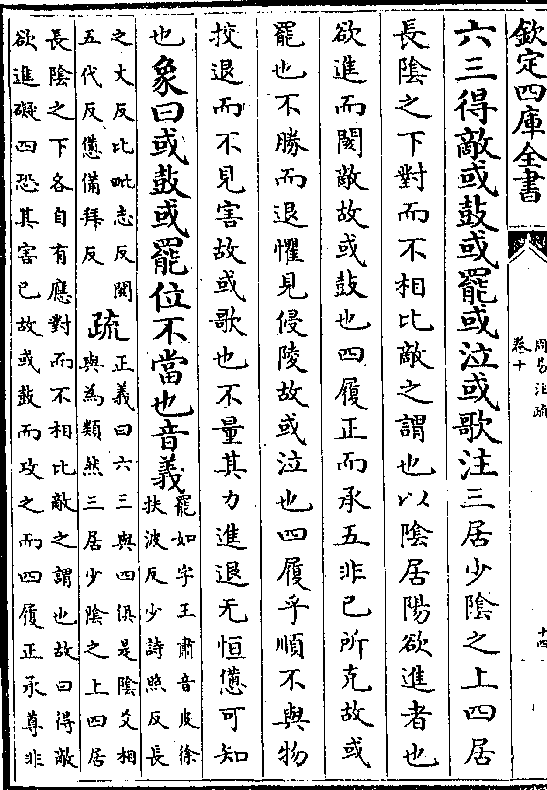 欽定四庫全書
周易注疏
卷十
十四
六三得敵或鼓或罷或泣或歌注三居少陰之上四居
長陰之下對而不相比敵之謂也以陰居陽欲進者也
欲進而閡敵故或鼓也四履正而承五非已所克故或
罷也不勝而退懼見侵陵故或泣也四履乎順不與物
挍退而不見害故或歌也不量其力進退无恒憊可知
也象曰或鼓或罷位不當也音義罷如字王肅音皮徐
扶波反少詩照反長
之丈反比毗志反閡
五代反憊備拜反
疏正義曰六三與四俱是陰爻相
與為類然三居少陰之上四居
長陰之下各自有應對而不相比敵之謂也故曰得敵
欲進礙四恐其害已故或鼓而攻之而四履正承尊非